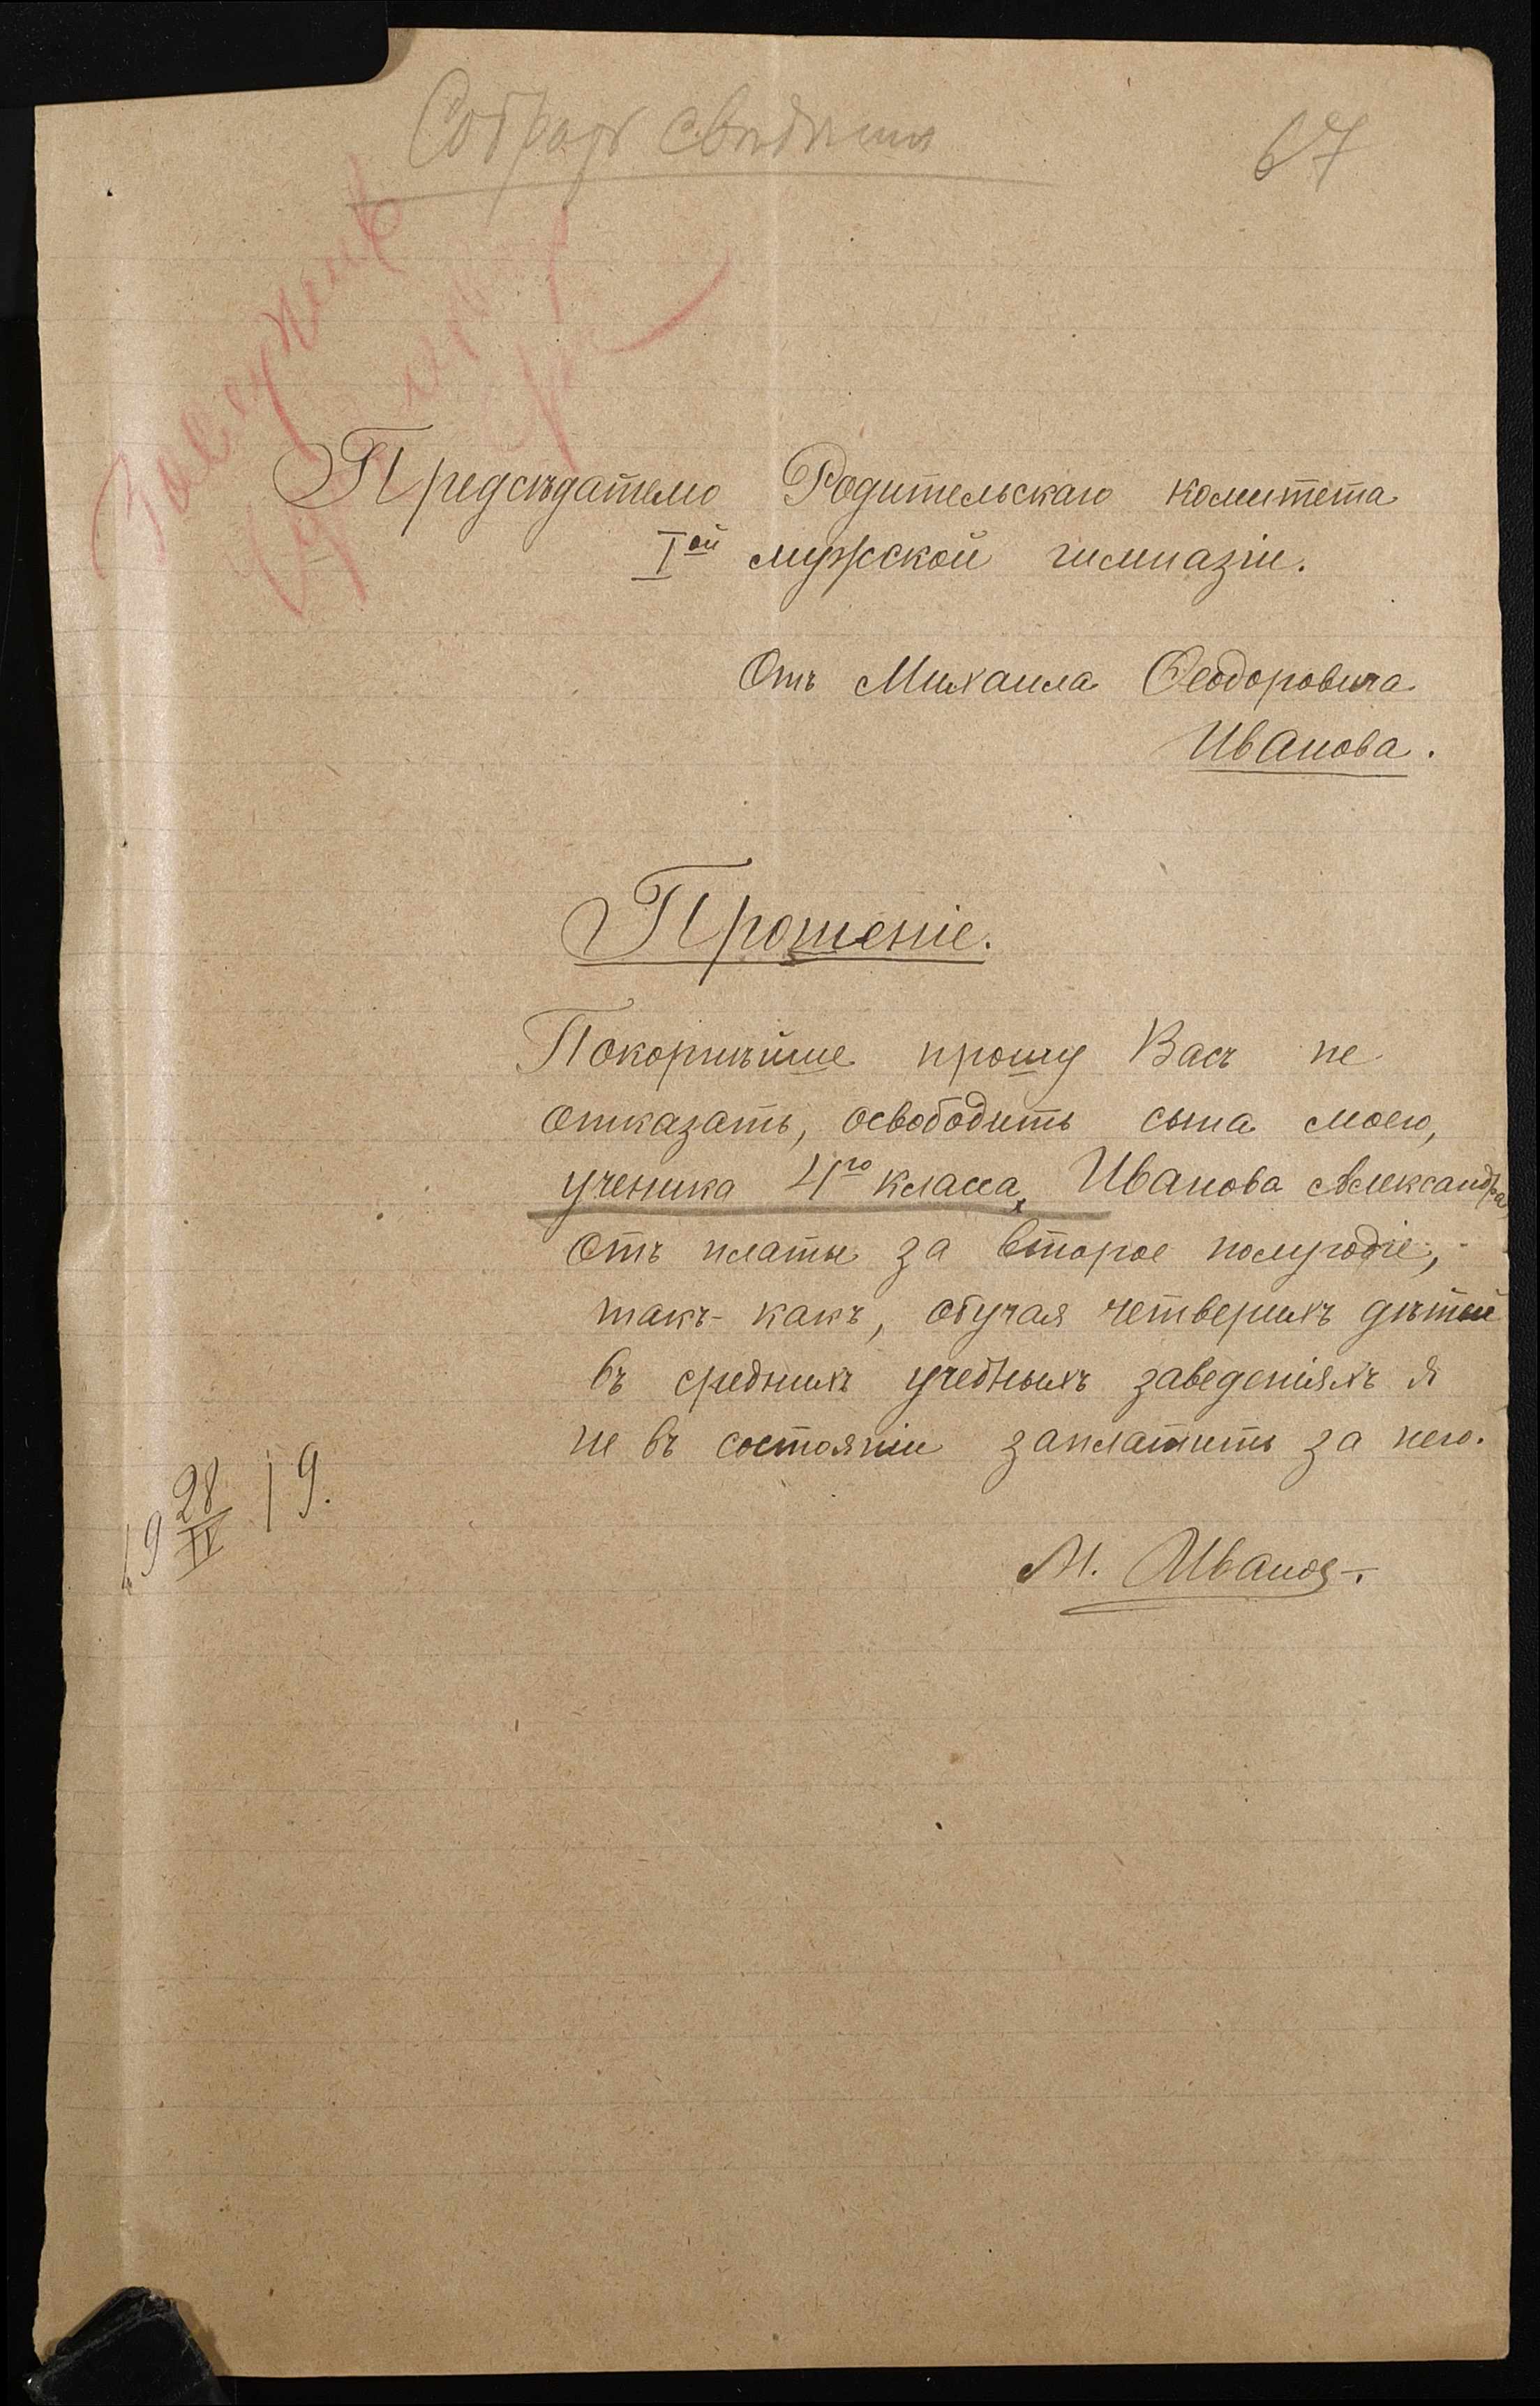 Собрать свѣдѣнія
67
Предсѣдателю Родительскаго комитета
Iой мужской гимназіи.
Отъ Михаила Ѳеодоровича
Иванова.
Прошеніе.
Покорнѣйше прошу Васъ не
отказать, освободить сына моего,
ученика 4го класса, Иванова Александра
отъ платы за второе полугодіе,
такъ-какъ, обучая четверыхъ дѣтей
въ среднихъ учебныхъ заведеніяхъ я
не въ состояніи заплатить за него.
19 28/IV 19.
М. Ивановъ.